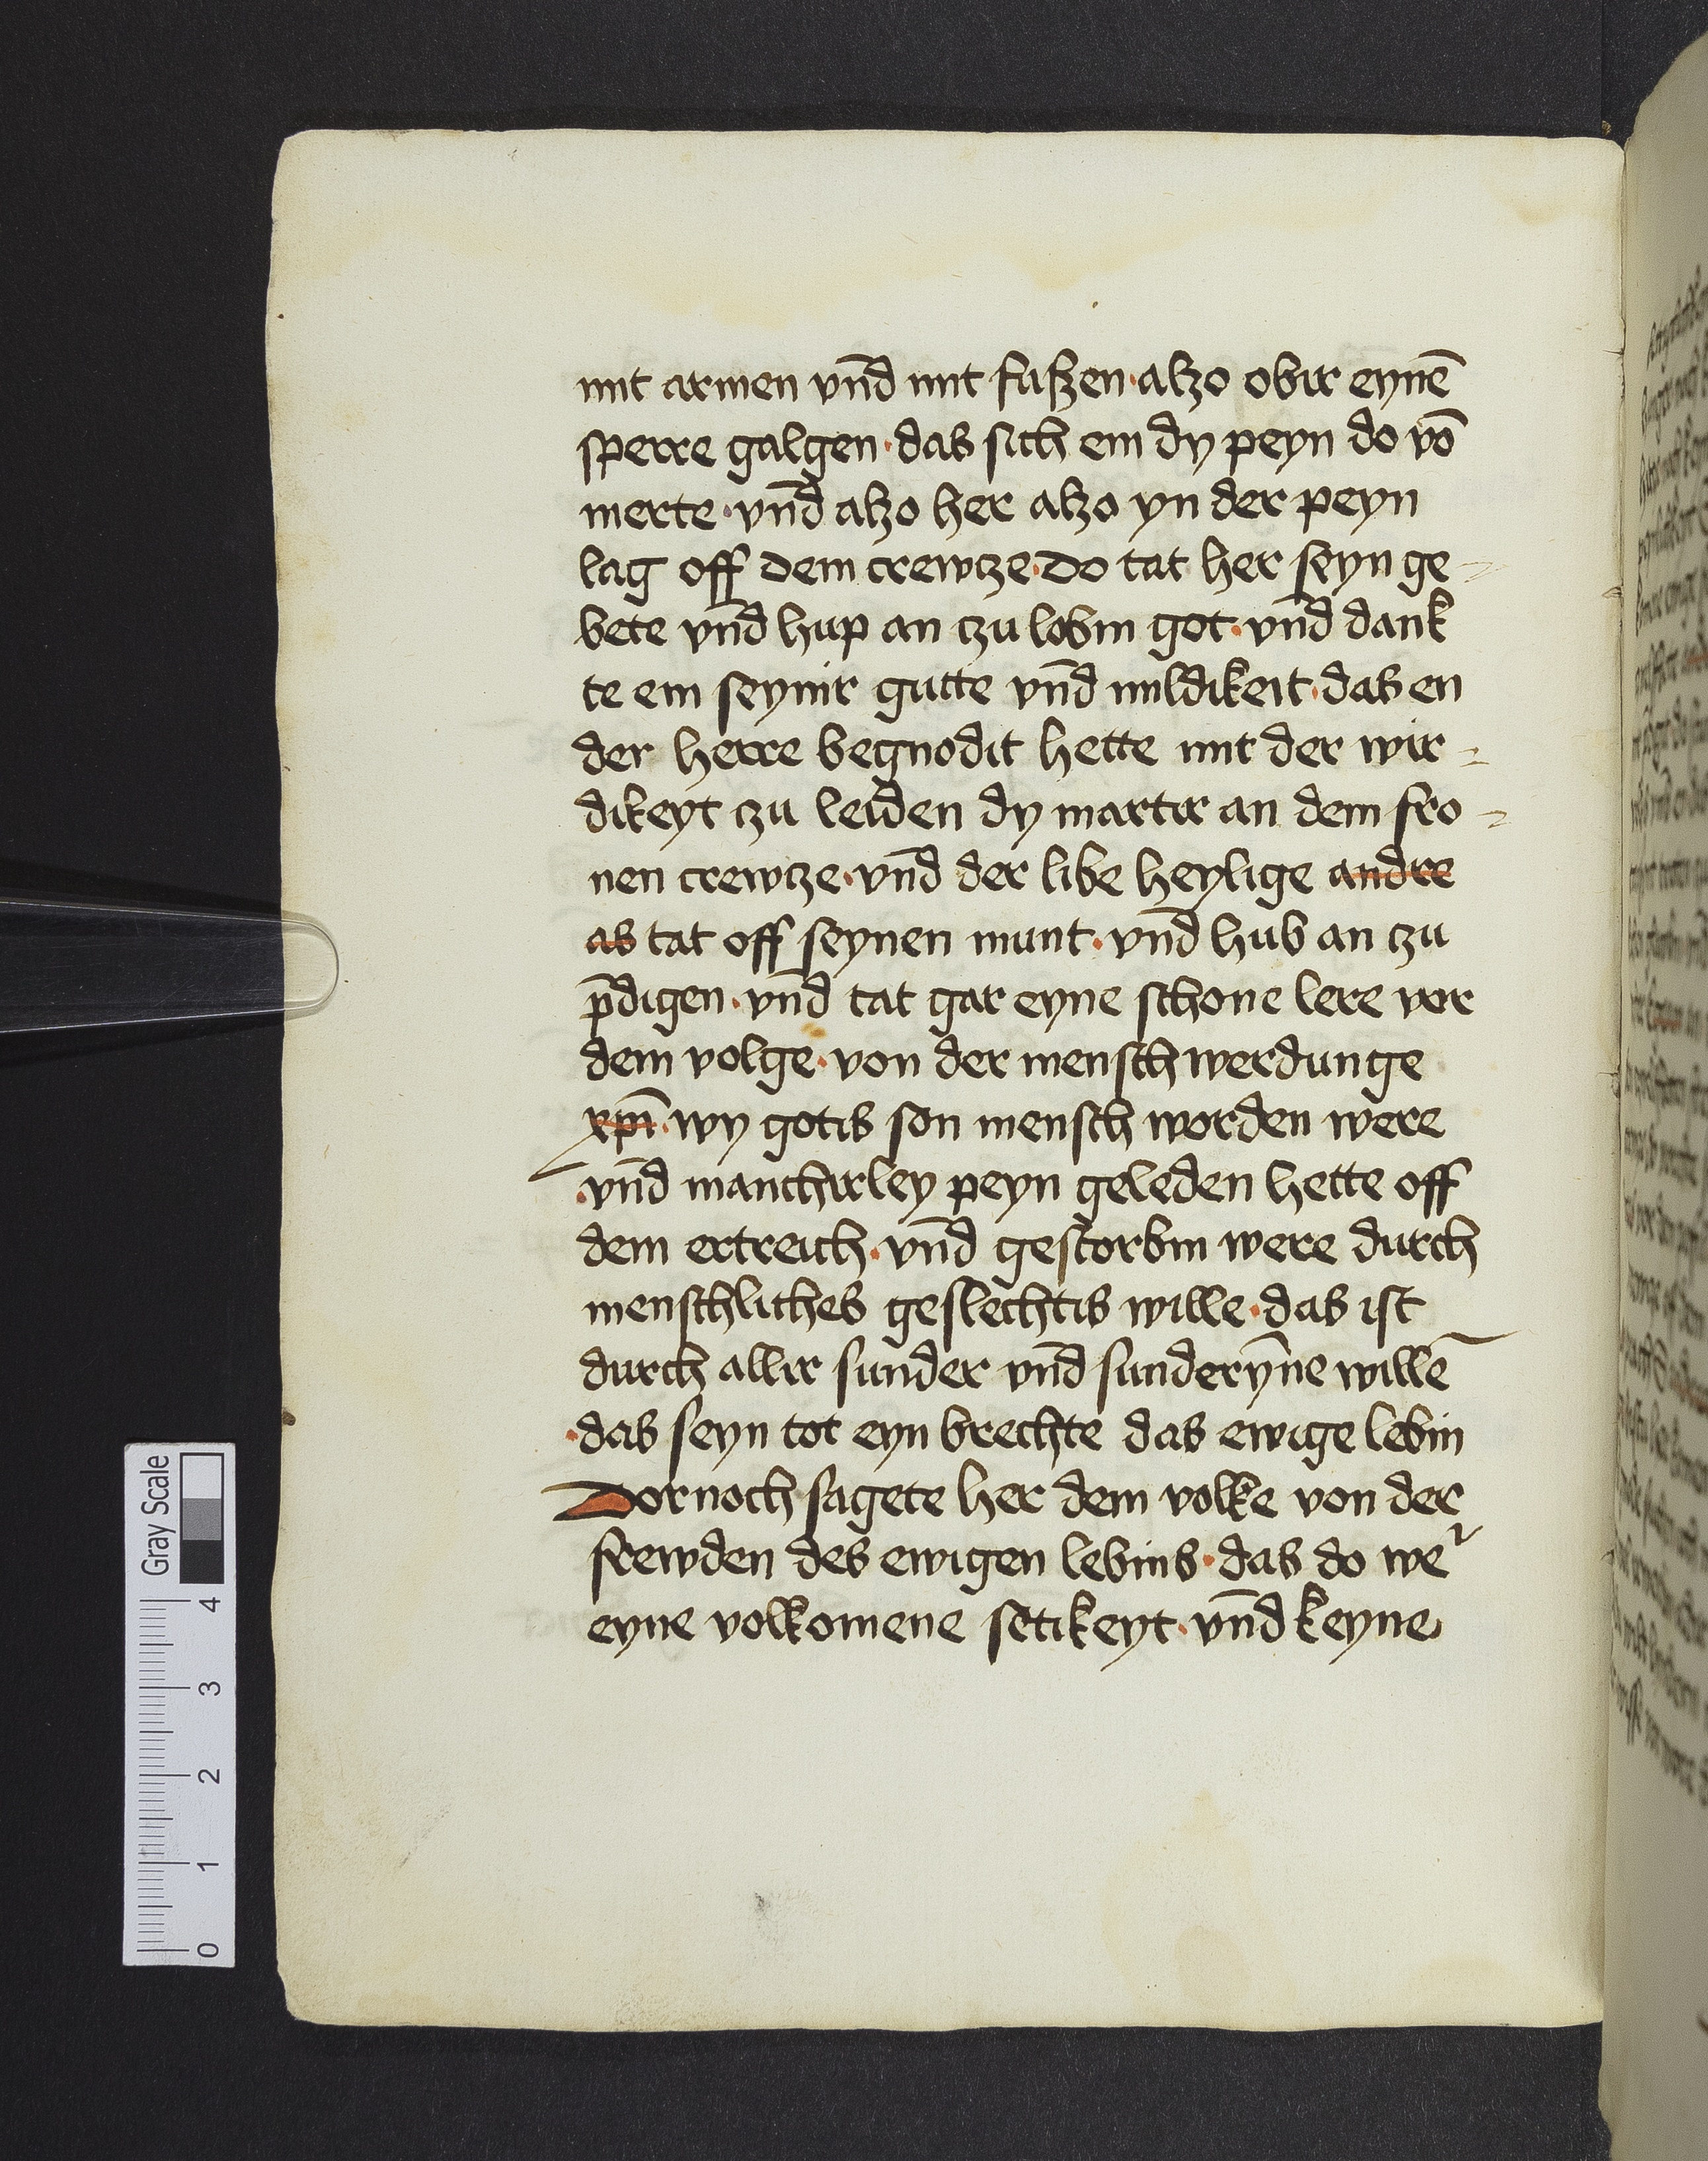 mit armen vn̄d mit fußen · alzo obir eynē
sperre galgen · das sich em dy peyn do vō
merte · vn̄d alzo her alzo yn der peyn
lag off dem crewcze · Do tat her seyn ge-
bete vn̄d hup an czu lobin got · vn̄d dank
te em seynir gutte vn̄d mildikeit · das en
der herre begnodit hette mit der wir-
dikeyt czu leiden dy martir an dem fro-
nen crewcze · vn̄d der libe heylige andre
as tat off seynen munt · vn̄d hub an czu
p̄digen · vn̄d tat gar eyne schone lere vor
dem volge · von der mensch werdunge
xp̄i · wy gotis son mensch worden were
· vn̄d manchirley peyn geleden hette off
dem ertreich · vn̄d gestorbin were durch
menschliches geslechtis wille · das ist
durch allir sunder vn̄d sunderȳne willē
· das seyn tot eyn brechte das ewige lebin
Dornoch sagete her dem volke von der
frewden des ewigen lebins · das do we͛
eyne volkomene setikeyt · vn̄d keyne
Gray Scale
4
3
2
1
0